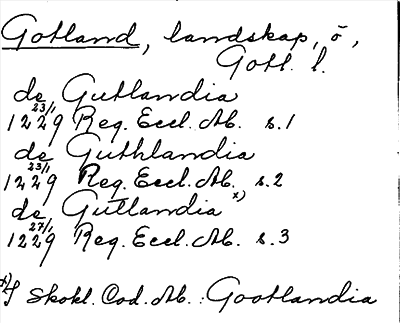 Gotland, landskap, ö,
Gotl. l.
de Gutlandia
23/1
1229 Reg. Eccl. Ab. s.1
de Guthlandia
23/1
1229 Reg. Eccl. Ab. s.2
de Gutlandia x)
27/1
1229 Reg. Eccl. Ab. s.3
x) I Skokl. Cod. Ab.: Gootlandia